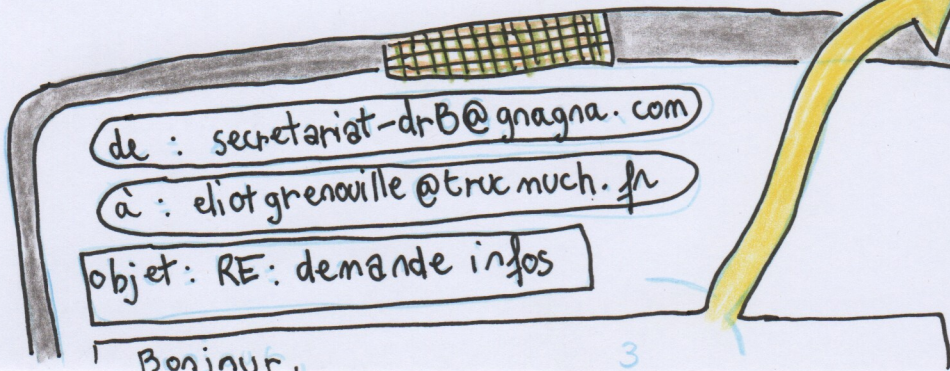 de : secretariat-drB@gnagna.com
à : eliotgrenouille@trucmuch.fr
objet : RE: demande infos
Bonjour,
3